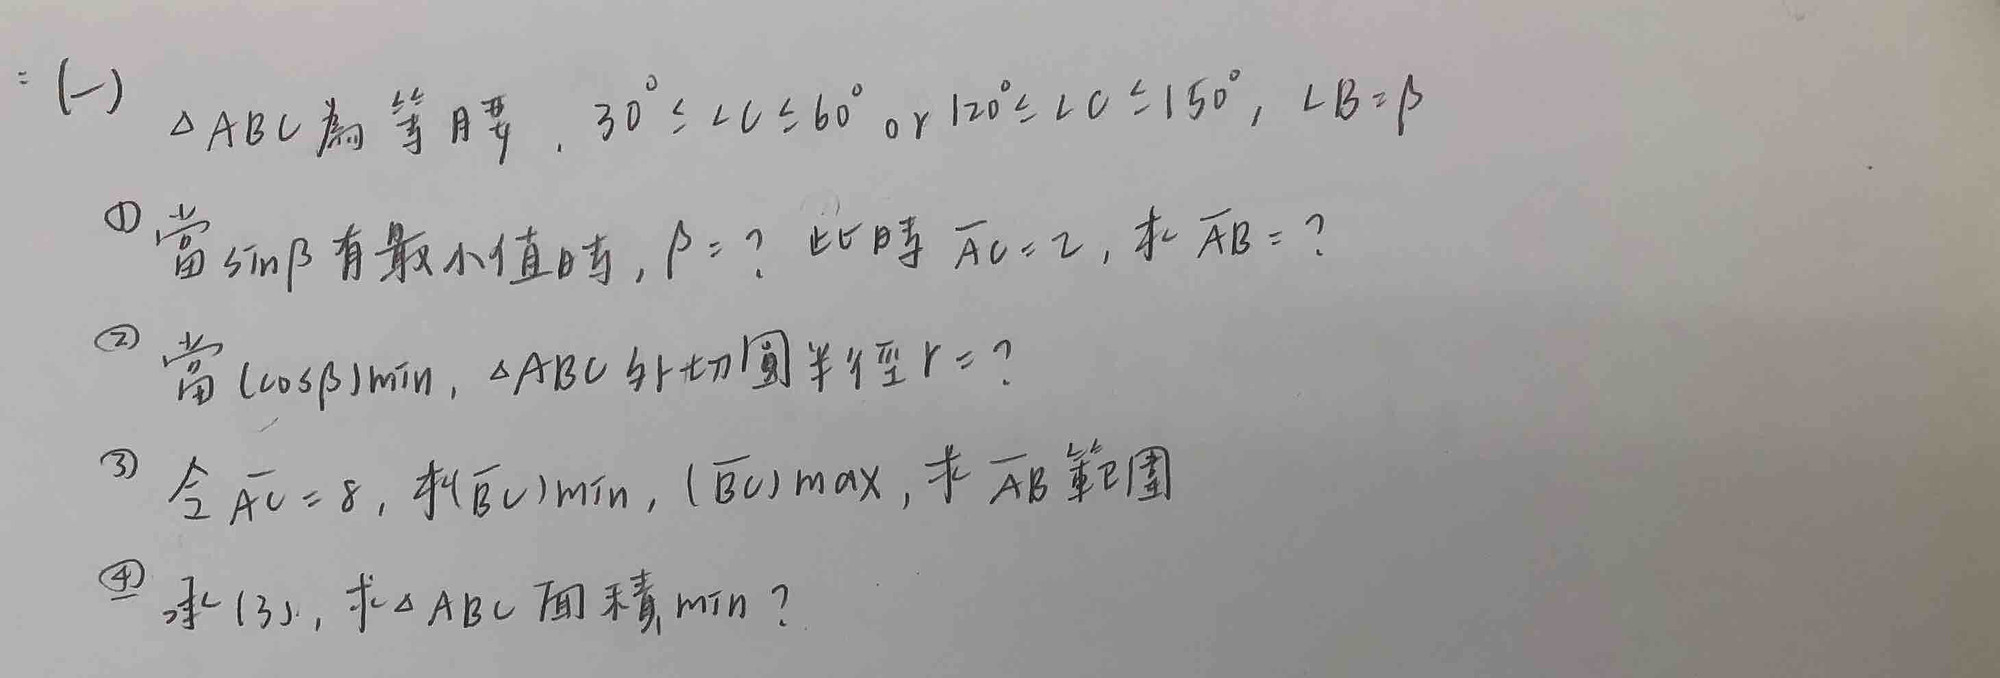 (一) △ABC為等腰, 30°≤∠C≤60° or 120°≤∠C≤150°, ∠B=β
① 當sinβ有最小值時, β=? 此時 AC=2, 求 AB=?
② 當(cosβ)min, △ABC外切圓半徑r=?
③ 令AC=8, 求(BC)min, (BC)max, 求 AB範圍
④ 承(3), 求△ABC面積min?